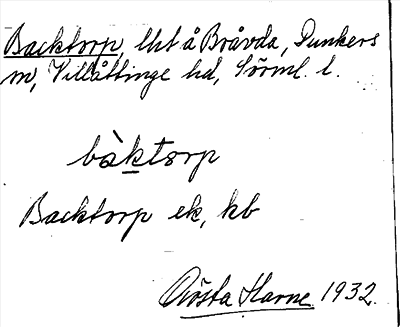 Backtorp, lht å Bråvda, Dunkers
sn, Villåttinge hd, Sörml. l.
bàktorp
Backtorp ek, kb
Gösta Harne 1932